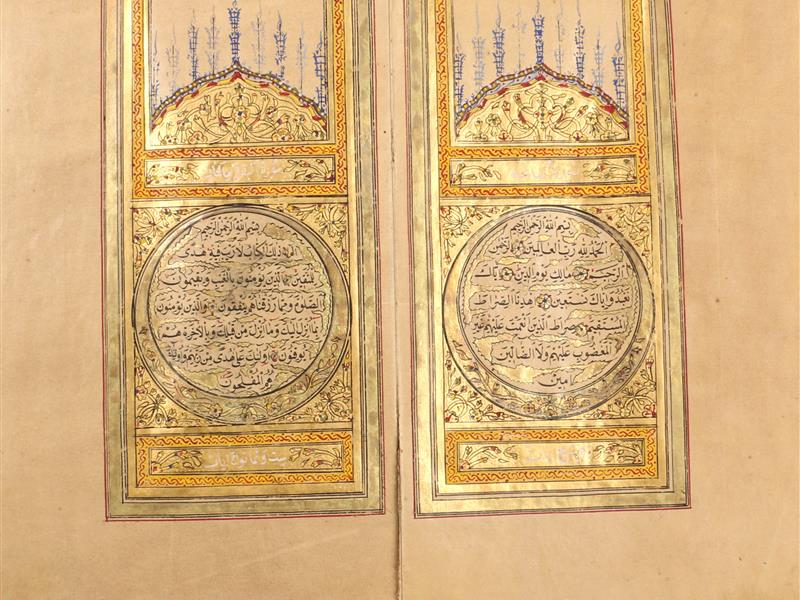 بسم الله الرحمن الرحيم
الحمد لله رب العالمين الرحمن
الرحيم مالك يوم الدين اياك
نعبد واياك نستعين اهدنا الصراط
المستقيم صراط الذين انعمت عليهم غير
المغضوب عليهم ولا الضالين
امين
بسم الله الرحمن الرحيم
الم ذلك الكتاب لا ريب فيه هدى
للمتقين الذين يؤمنون بالغيب ويقيمون
الصلوة ومما رزقناهم ينفقون والذين يؤمنون
بما انزل اليك وما انزل من قبلك وبالاخرة هم
يوقنون اولئك على هدى من ربهم واولئك
هم المفلحون
ست وثمانون ايات